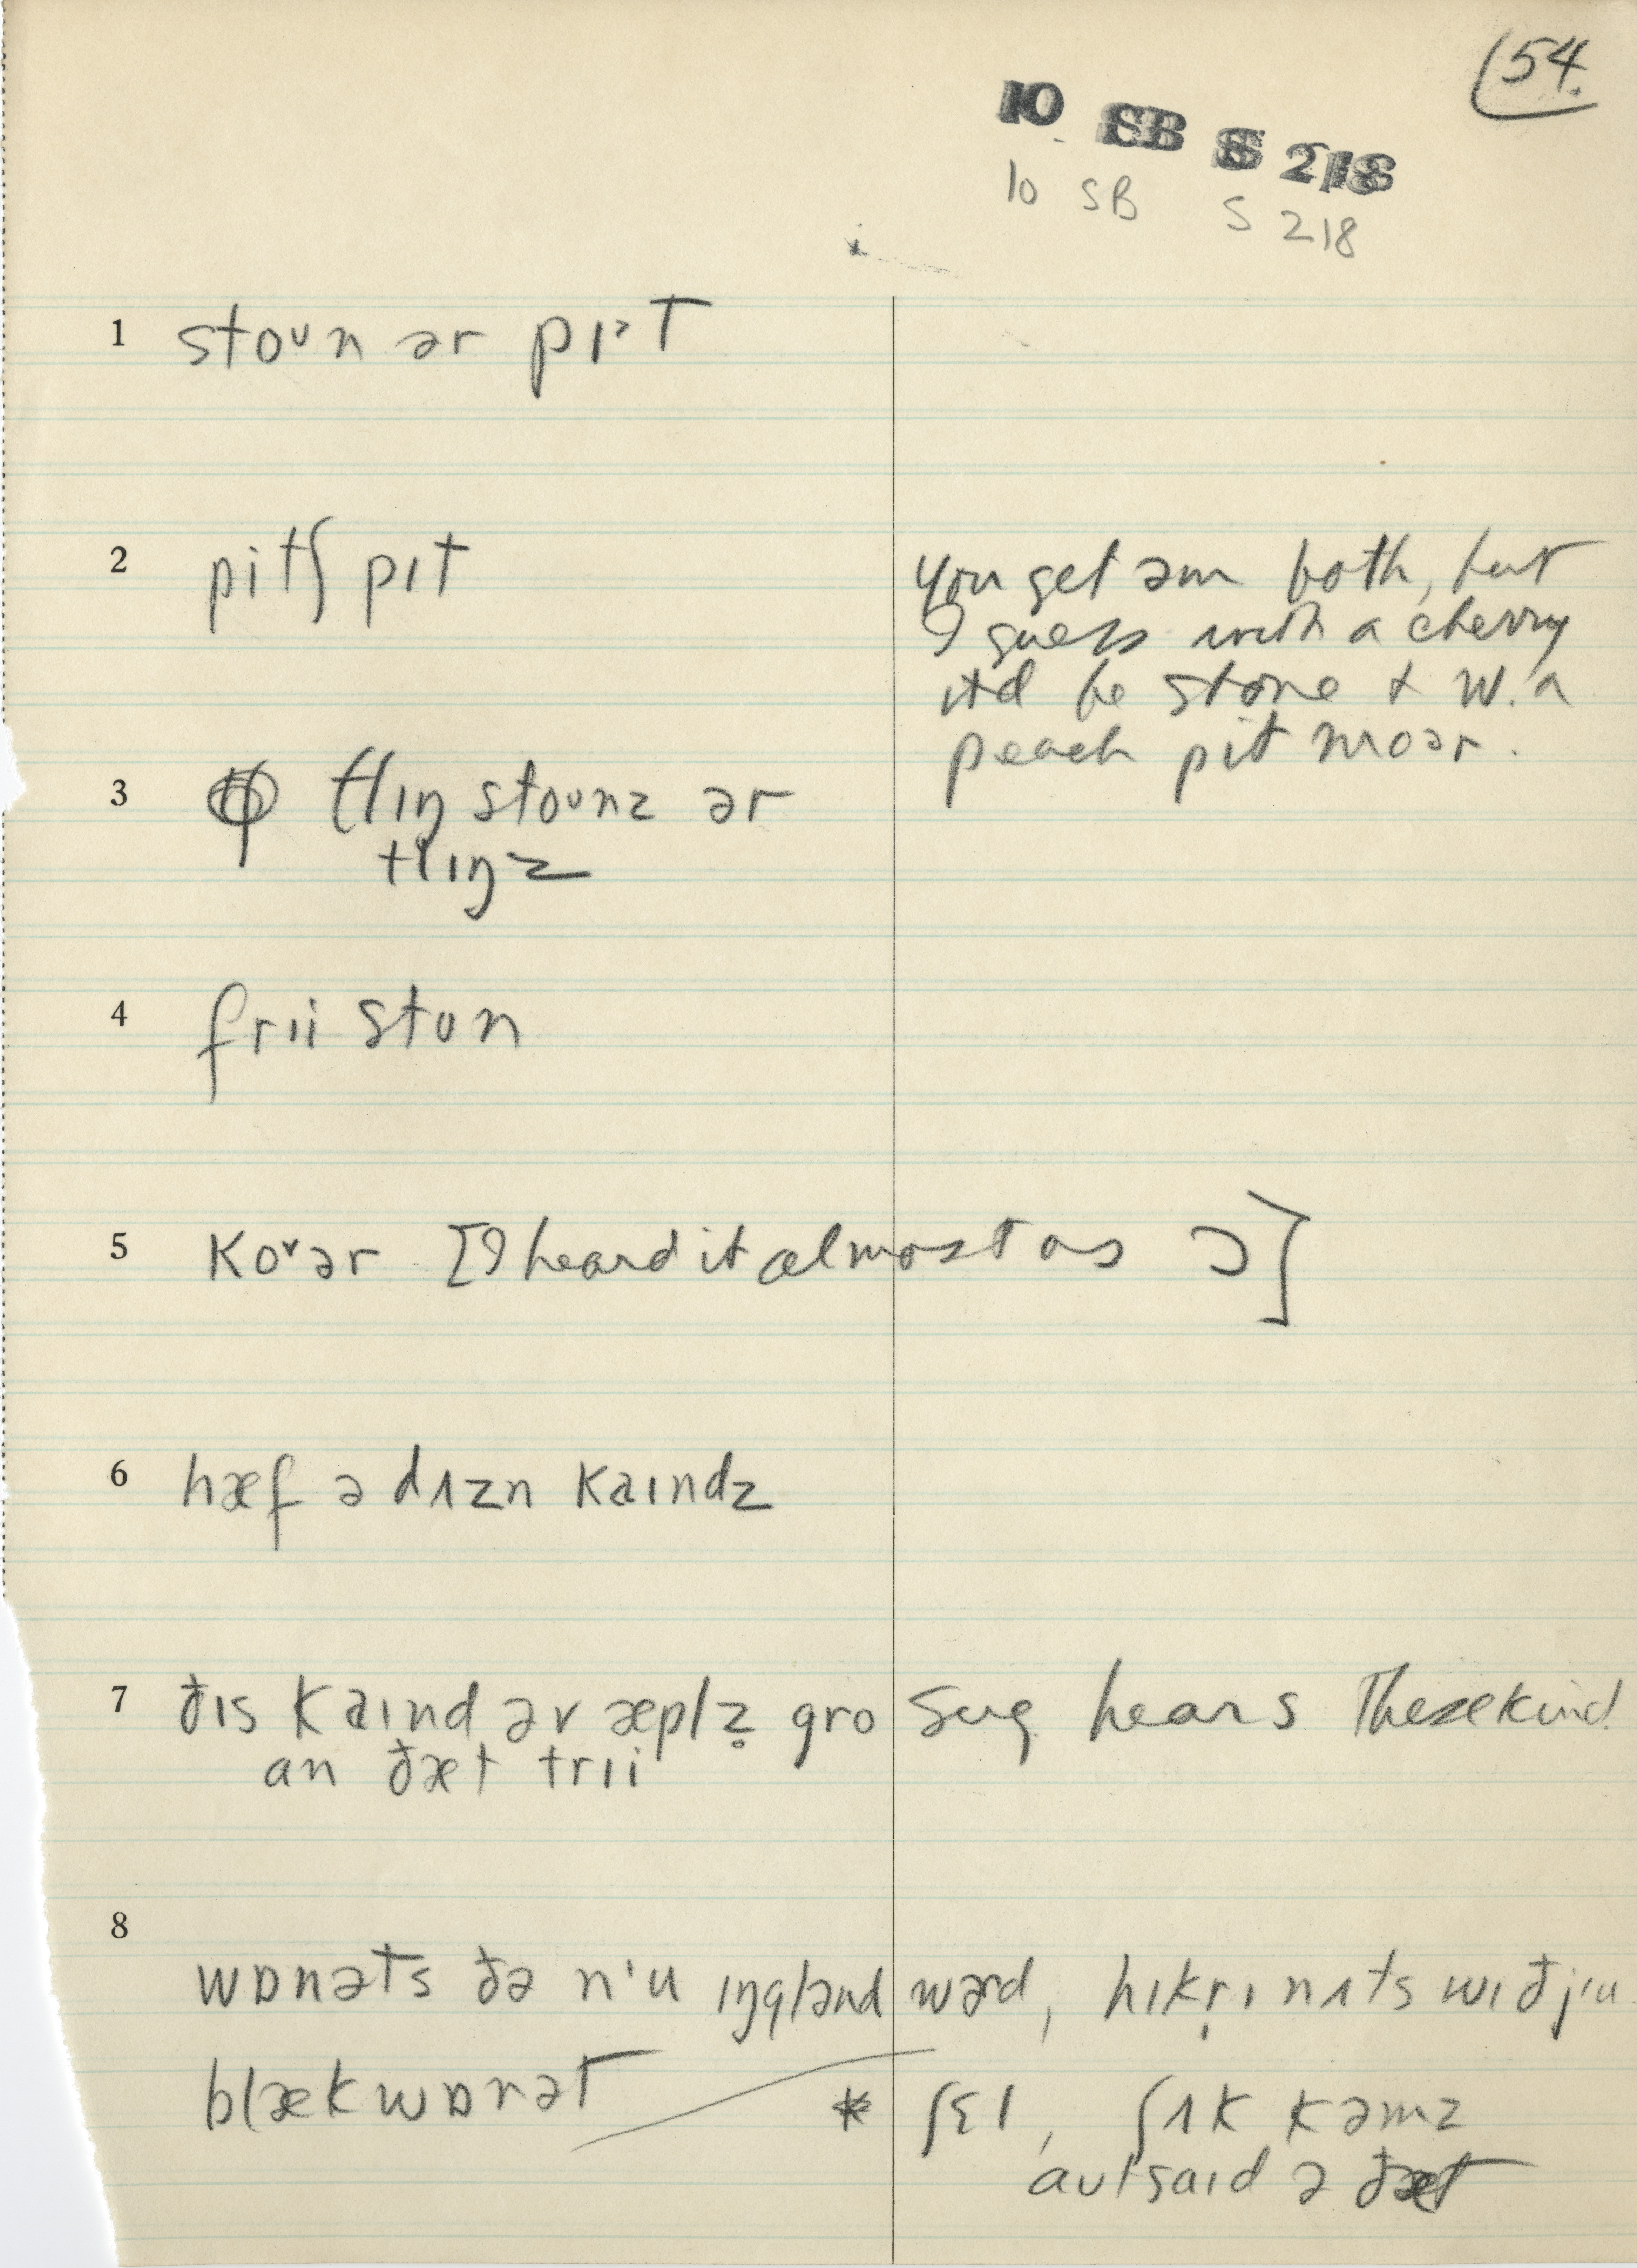 54.
10 SB S 218
10 SB S 218
1 stoᴜn ər pɪˑt
2 pitʃ pɪt
you get əm both, but
I guess with a cherry
it'd be stone + w. a
peach pit moər.
3 tlɪŋ stoᴜnz ər
tlɪŋz
4 frɪi ston
5 koˇər [I heard it almost as ɔ]
6 hæf ə dʌzn kaɪndz
7 ðɪs kaɪnd əv æplz̥ gro
an ðæt trɪi
Sug. hears These kind
8
wɒnəts ðə nˈu ɪŋglənd wərd, hɪkrɪ nʌts wɪð jɪu
blækwɒnət
* ʃɛl, ʃʌk kəmz
aᴜtsaɪd ə ðæt